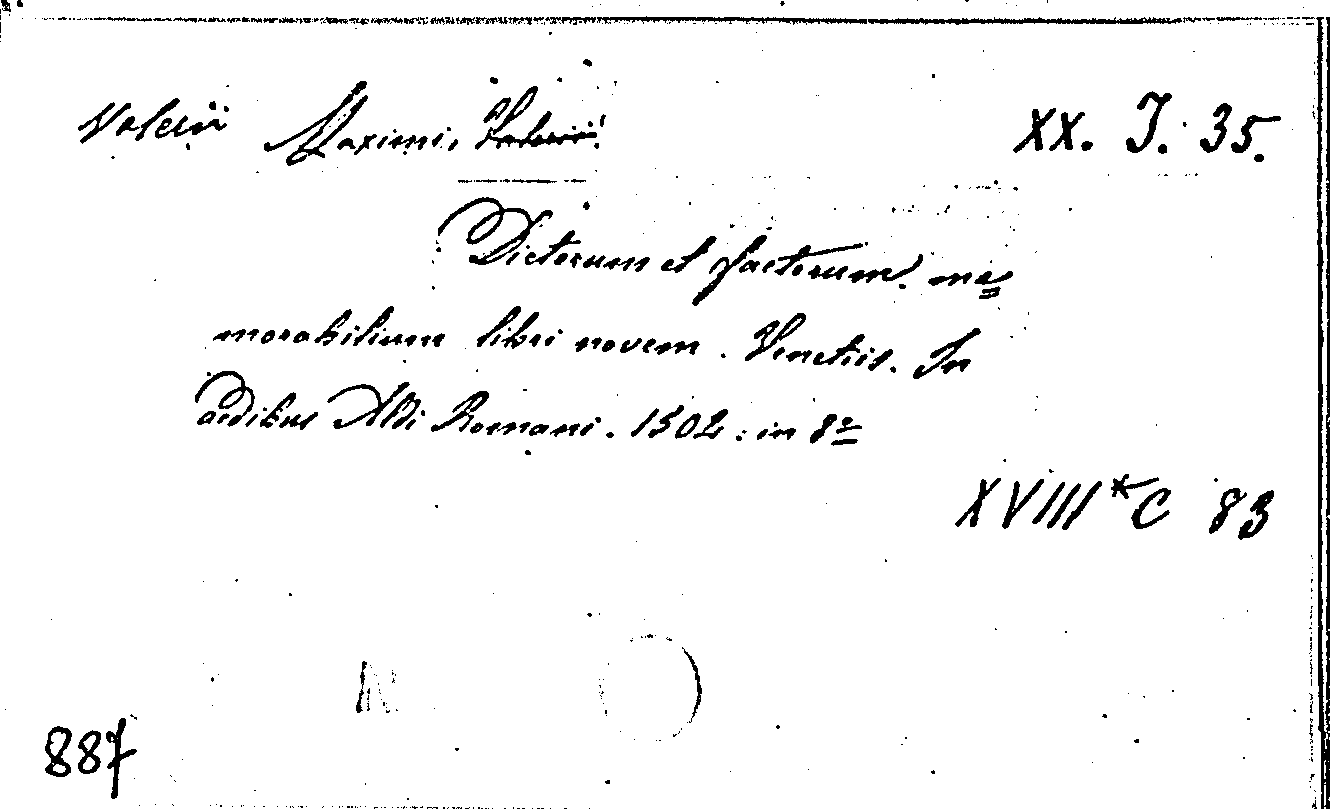 Valerii Maximi, Valerii. XX. J. 35.
Dictorum et factorum. me=
morabilium libri novem. Venetiis. In
aedibus Aldi Romani. 1502. in 8º
XVIII* C 83
887